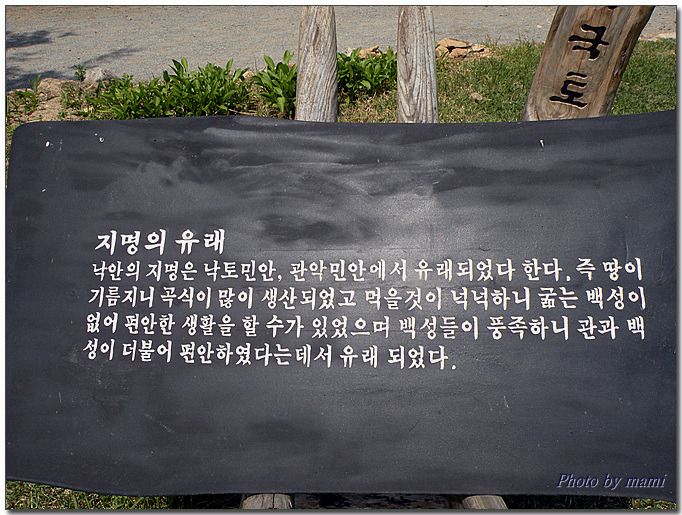 국토
지명의 유래
낙안의 지명은 낙토민안, 관악민안에서 유래되었다 한다. 즉 땅이
기름지니 곡식이 많이 생산되었고 먹을것이 넉넉하니 굶는 백성이
없어 편안한 생활을 할 수가 있었으며 백성들이 풍족하니 관과 백
성이 더불어 편안하였다는데서 유래 되었다.
Photo by mami